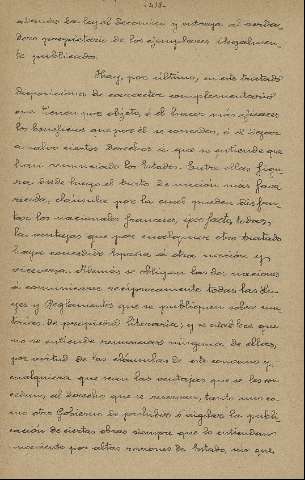 -218-
siderados la ley al decomiso y entrega al verda-
dero propietario de los ejemplares ilegalmen-
te publicados.
Hay, por último, en este tratado
disposiciones de carácter complementario
que tienen por objeto, ó el hacer más eficaces
los beneficios que por él se conceden, ó el dejar
á salvo ciertos derechos á que se entiende que
han renunciado los Estados. Entre ellas figu-
ra desde luego el trato de nación más favo-
recida, cláusula por la cual pueden disfru-
tar los nacionales franceses, ipso facto, todas
las ventajas que por cualquier otro tratado
haya concedido España á otra nación y
viceversa. Además se obligan las dos naciones
á comunicarse recíprocamente todas las Le-
yes y Reglamentos que se publiquen sobre ma-
terias de propiedad literaria, y se establece que
no se entiende renunciado ninguna de ellas,
por virtud de las cláusulas de este convenio y
cualquiera que sean las ventajas que se les con-
cedan, al derecho que se reservan, tanto uno co-
mo otro Gobierno de prohibir ó vigilar la publi-
cación de ciertas obras siempre que lo entiendan
conveniente por altas razones de Estado, sin que